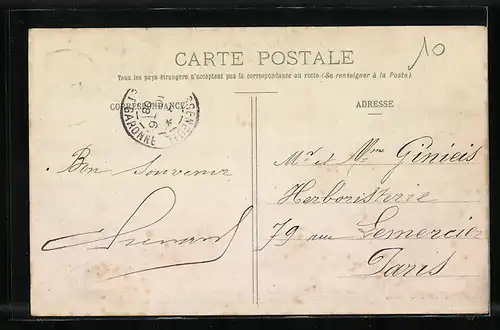 CARTE POSTALE
10
Tous les pays étrangers n'acceptent pas la correspondance au recto (Se renseigner à la Poste)
CORRESPONDANCE
ADRESSE
GARONNE
Bon Souvenir
Mr et Mme Ginieis
Herboristerie
79 rue Lemercier
Paris